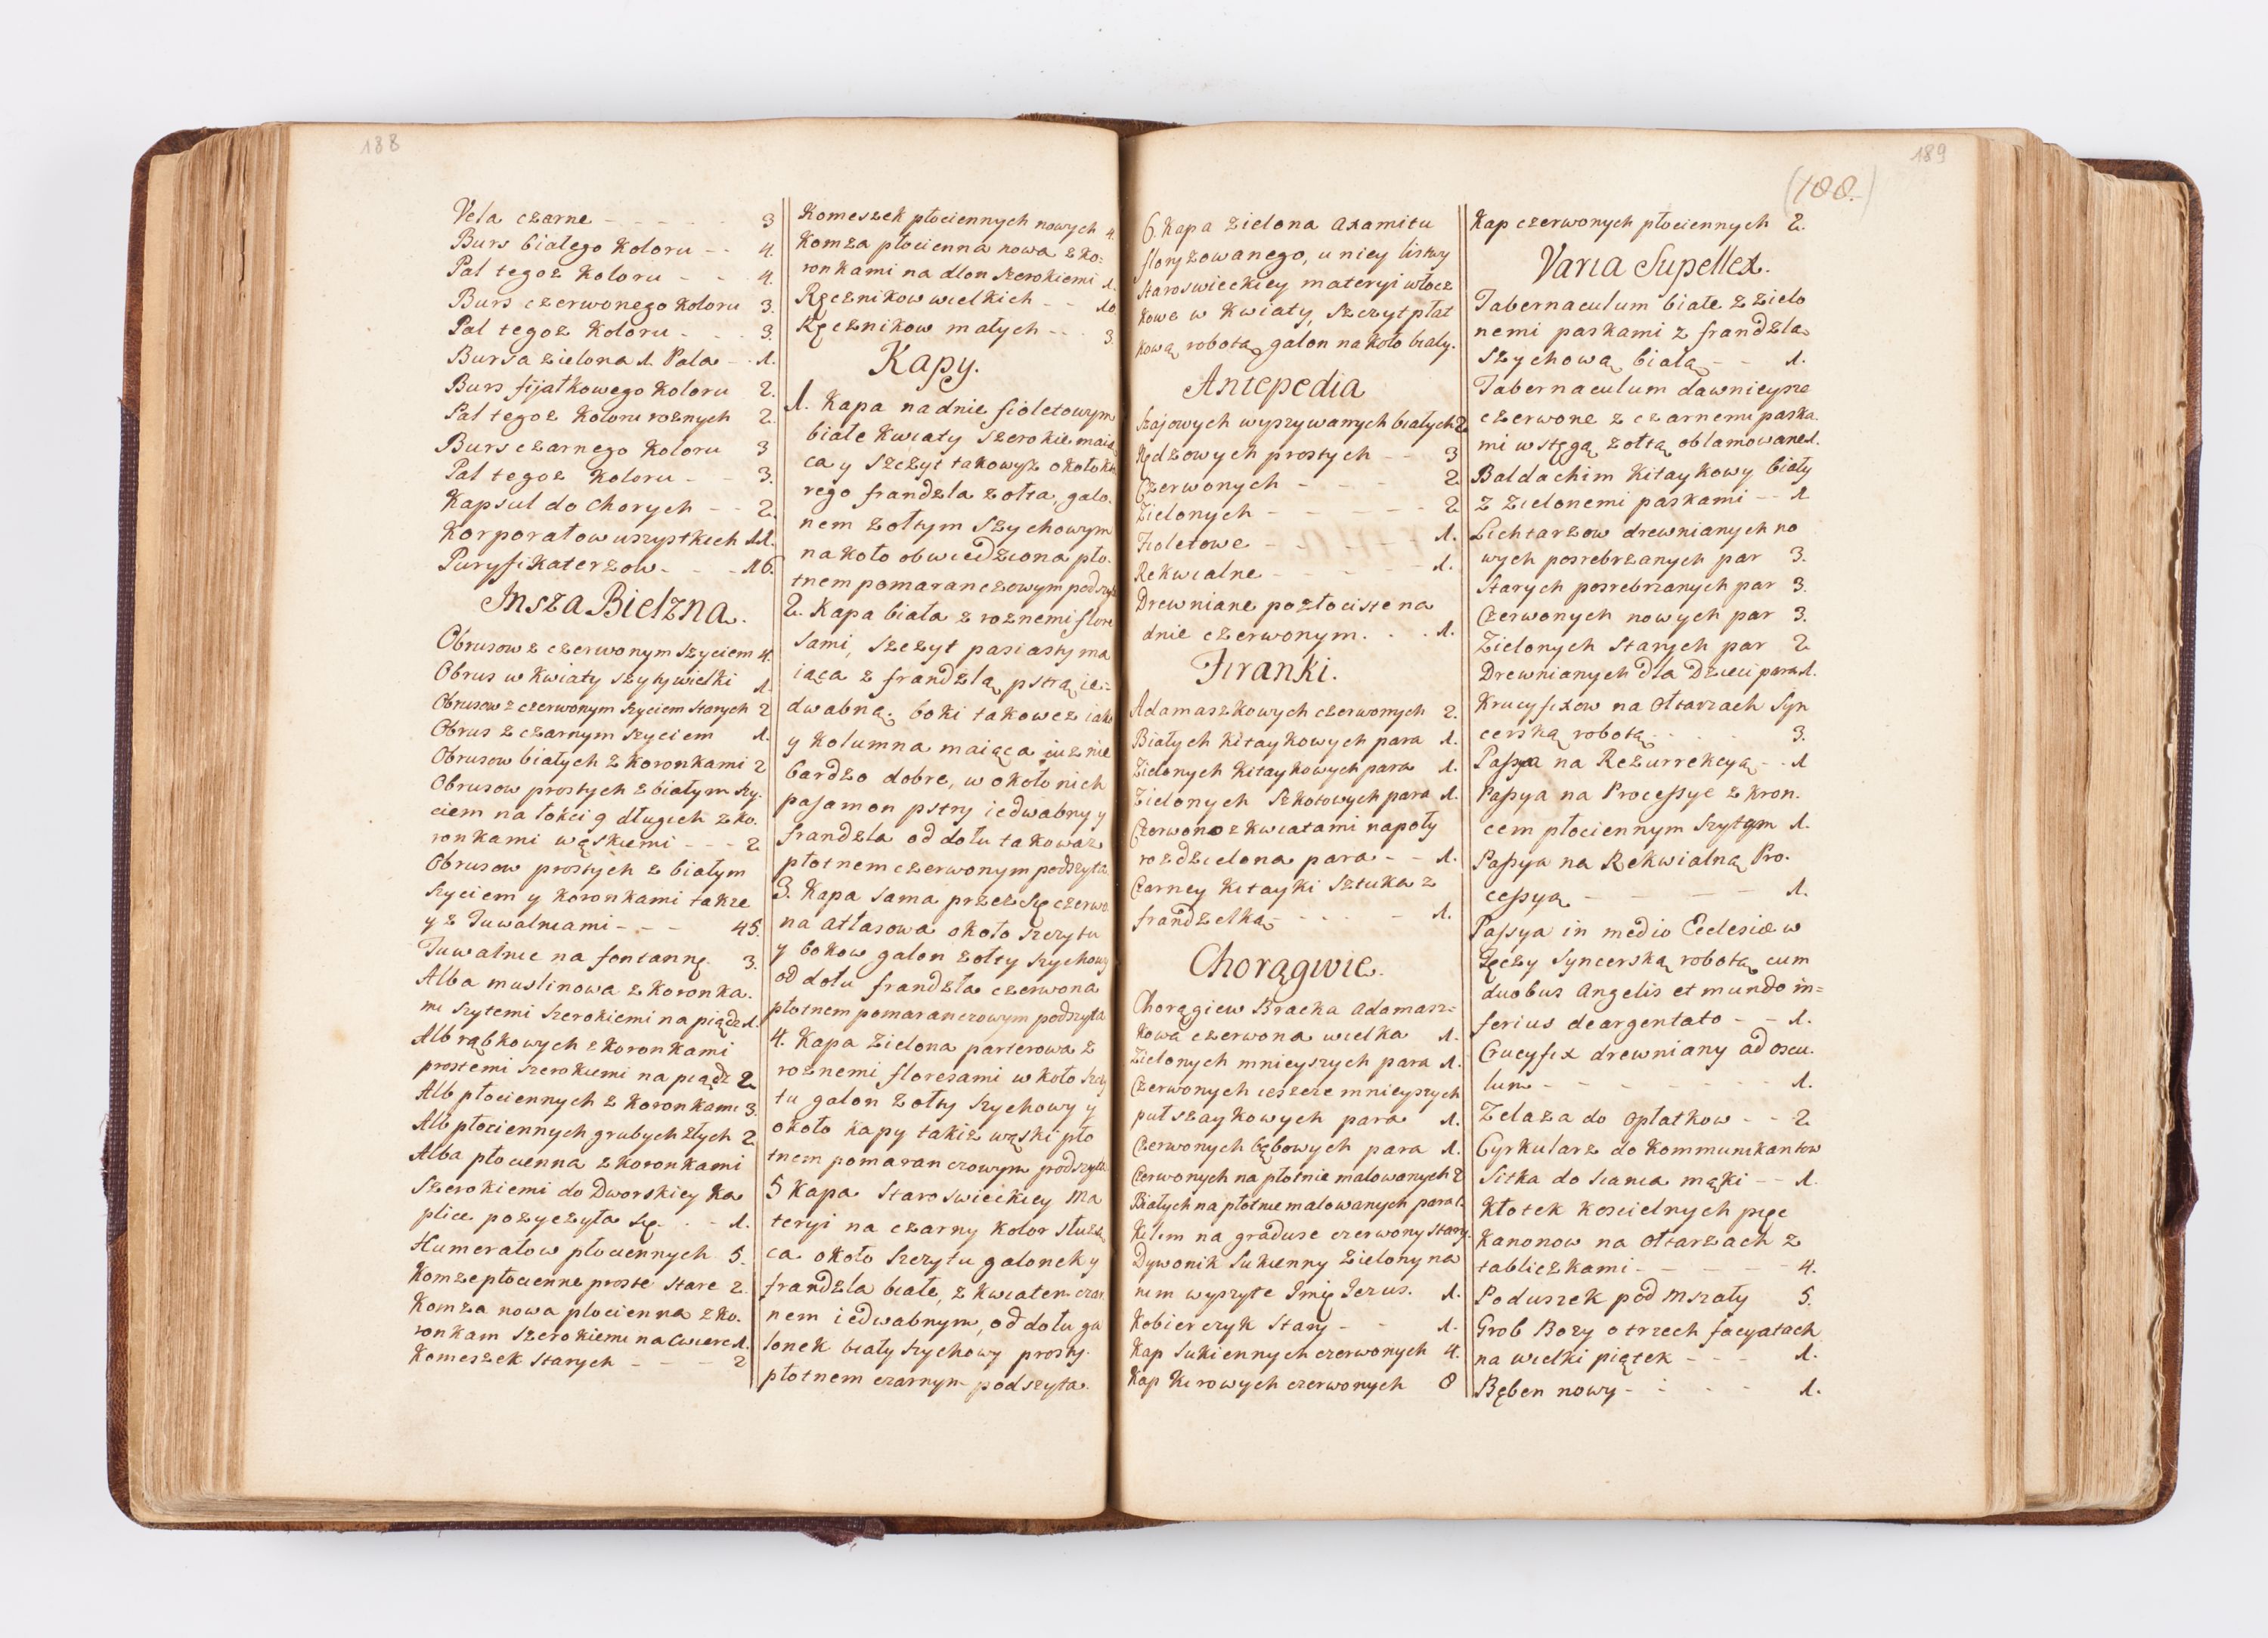 188
Vela czarne - - - - - 3
Burs białego Koloru - - 4.
Pal tegoż Koloru - - 4.
Burs czerwonego Koloru 3.
Pal tegoż Koloru - - - 3.
Bursa zielona 1. Pala - - 1.
Burs fijałkowego Koloru 2.
Pal tegoż Koloru rożnych 2.
Burs czarnego Koloru 3
Pal tegoż Koloru - - 3.
Kapsul do Chorych - - 2.
Korporałow wszystkich 11.
Puryfikaterzow - - - 16.
Insza Bielzna.
Obrusow z czerwonym szyciem 4.
Obrus w Kwiaty szyty wielki 1.
Obrusow z czerwonym szyciem starych 2
Obrus z czarnym szyciem 1.
Obrusow białych z Koronkami 2
Obrusow prostych z białym szy.
ciem na łokci 9 długich z ko.
ronkami wąskiemi - - - 2
Obrusow prostych z białym
szyciem y Koronkami także
y z Tuwalniami - - - 45.
Tuwalnie na fontannę 3.
Alba muslinowa z Koronka.
mi szytemi szerokiemi na piądz 1.
Alb rąbkowych z koronkami
prostemi szerokiemi na piądz 2
Alb płociennych z Koronkami 3.
Alb płociennych grubych złych 2
Alba płocienna z koronkami
szerokiemi do Dworskiey Ka
plice pożyczyła się - - 1.
Humerałow płociennych 5.
Komze płocienne proste stare 2.
Komza nowa płocienna z ko.
ronkam szerokiemi na cwierc 1.
Komeszek starych - - - - 2
Komeszek płociennych nowych 4.
Komza płocienna nowa z ko:
ronkami na dlon szerokiemi 1.
Ręcznikow wielkich - - 10
Ręcznikow małych - - - 3.
Kapy.
1. Kapa na dnie fioletowym
białe Kwiaty szerokie maią
ca y szczyt takowyz około któ
rego frandzla zołta, galo.
nem zołtym szychowym
na koło obwiedziona pło.
tnem pomaranczowym podszyt
2. Kapa biała z roznemi flore
sami, szczyt pasiasty ma
iąca z frandzlą pstrą ie=
dwabną; boki takowez iak
y kolumna maiąca iuz nie
bardzo dobre, w około nich
pasamon pstry iedwabny y
frandzla od dołu takowaz
płotnem czerwonym podszyta.
3. Kapa sama przez się czerwo
na atłasowa około szczytu
y bokow galon zołty szychowy
od dołu frandzla czerwona
płotnem pomaranczowym podszyta
4. Kapa Zielona parterowa z
roznemi floresami w koło szczy
tu galon zołty szychowy y
około kapy takiz wąski pło
tnem pomaranczowym podszyta.
5 Kapa staroswieckiey ma
teryi na czarny kolor służą
ca około szczytu galonek y
frandzla białe, z kwiatem czar
nem iedwabnym, od dołu ga
lonek biały szychowy prosty.
płotnem czarnym podszyta.
189
(188.)
6. Kapa Zielona axamitu
floryzowanego, u niey listwy
staroswieckiey materyi włocz
kowe w Kwiaty, szczyt płat
kową robotą galon na koło biały.
Antepedia
Krajowych wyszywanych białych 2
Kędzowych prostych - - 3
Czerwonych - - - - 2
Zielonych - - - - - 2
Fioletowe - - - - - 1.
Rekwialne - - - - - 1.
Drewniane pozłociste na
dnie czerwonym. - - 1.
Firanki.
Adamaszkowych czerwonych 2.
Białych Kitaykowych para 1.
Zielonych Kitaykowych para 1.
Zielonych Szkotowych para 1.
Czerwono z kwiatami napoły
rozdzielona para - - 1.
Czarney Kitayki sztuka z
frandzelką - - - - - 1.
Chorągwie.
Chorągiew Bracka Adamasz=
kowa czerwona wielka 1.
Zielonych mnieyszych para 1.
Czerwonych ieszcze mnieyszych
pułszaykowych para 1.
Czerwonych bębowych para 1.
Czerwonych na płotnie malowanych 2
Białych na płotnie malowanych para 1.
Kilim na graduse czerwony stary.
Dywonik Sukienny Zielony na
nim wyszyte Imię Jezus. 1.
Kobierczyk Stary - - 1.
Kap Sukiennych czerwonych 4.
Kap Kirowych czerwonych 8
Kap czerwonych płociennych 2.
Varia Supellex.
Tabernaculum białe z zielo
nemi paskami z frandzlą
szychową białą - - 1.
Tabernaculum dawnieysze
czerwone z czarnemi paska.
mi wstęgą zołtą oblamowane 1.
Baldachim Kitaykowy biały
z Zielonemi paskami - - 1
Lichtarzow drewnianych no
wych posrebrzanych par 3.
Starych posrebrzanych par 3.
Czerwonych nowych par 3.
Zielonych starych par 2
Drewnianych dla Dzieci para 1.
Krucyfixow na Ołtarzach Syn
cerską robotą - - - - 3.
Passya na Rezurrekcyą - - 1
Passya na Processye z Kron.
cem płociennym szytym 1.
Passya na Rekwialną Pro.
cessyą - - - - - 1.
Passya in medio Ecclesiæ w
Tęczy Syncerską robotą cum
duobus Angelis et mundo in=
ferius deargentato - - 1.
Crucyfix drewniany ad oscu.
lum - - - - - - - 1.
Zelaza do opłatkow - - 2
Cyrkularz do Kommunikantow
Sitka do siania mąki - - 1.
Kłotek Koscielnych pięć
Kanonow na Ołtarzach z
tabliczkami - - - - - 4.
Poduszek pod Mszały 5.
Grob Bozy o trzech facyatach
na wielki piątek - - - 1.
Bęben nowy - - - - 1.